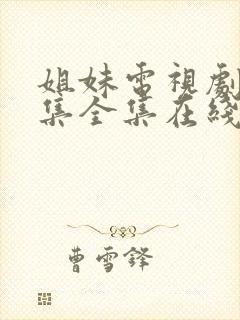 姐妹電視劇
集全集在綫
曹雪鋒